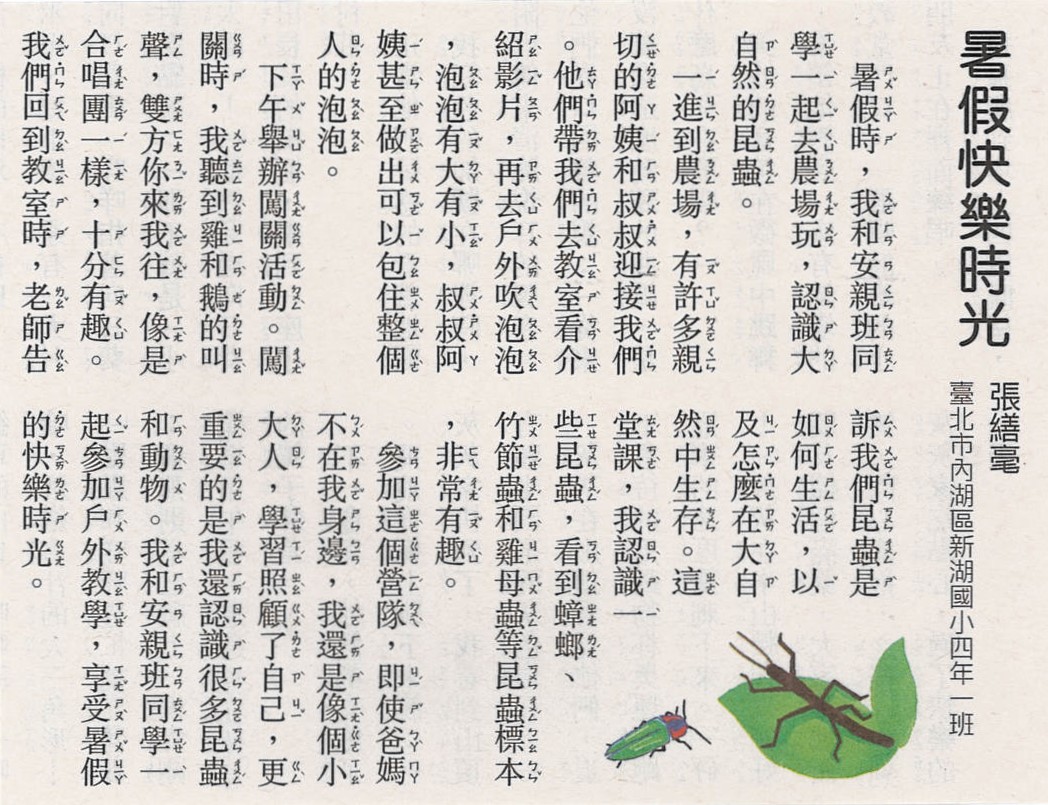 暑假快樂時光
張繕毫
臺北市內湖區新湖國小四年一班
暑假時，我和安親班同
學一起去農場玩，認識大
自然的昆蟲。
一進到農場，有許多親
切的阿姨和叔叔迎接我們
。他們帶我們去教室看介
紹影片，再去戶外吹泡泡
泡泡有大有小 叔叔阿
姨甚至做出可以包住整個
人的泡泡。
下午舉辦闖關活動。闖
關時，我聽到雞和鵝的叫
聲 雙方你來我往，像是
合唱團一樣，十分有趣。
我們回到教室時，老師告
訴我們昆蟲是
如何生活，以
及怎麼在大自
然中生存。這
堂課，我認識
些昆蟲，看到蟑螂、
竹節蟲和雞母蟲等昆蟲標本
，非常有趣。
參加這個營隊，即使爸媽
不在我身邊，我還是像個小
大人，學習照顧了自己，更
重要的是我還認識很多昆蟲
和動物。我和安親班同學一
起參加戶外教學，享受暑假
的快樂時光。